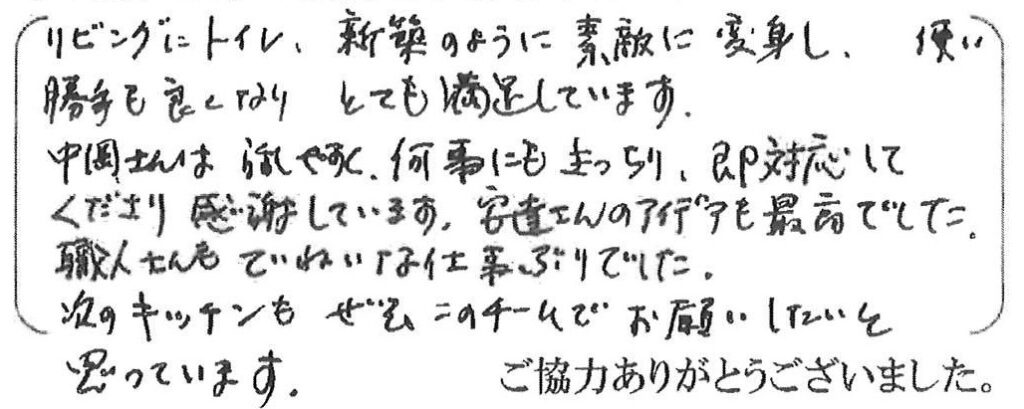 リビングにトイレ、新築のように素敵に変身し、使い
勝手も良くなり とても満足しています。
中岡さんは 話しやすく、何事にもきっちり、即対応して
くださり 感謝しています。安達さんのアイデアも最高でした。
職人さんも ていねいな仕事ぶりでした。
次のキッチンも ぜひ このチームで お願いしたいと
思っています。
ご協力ありがとうございました。